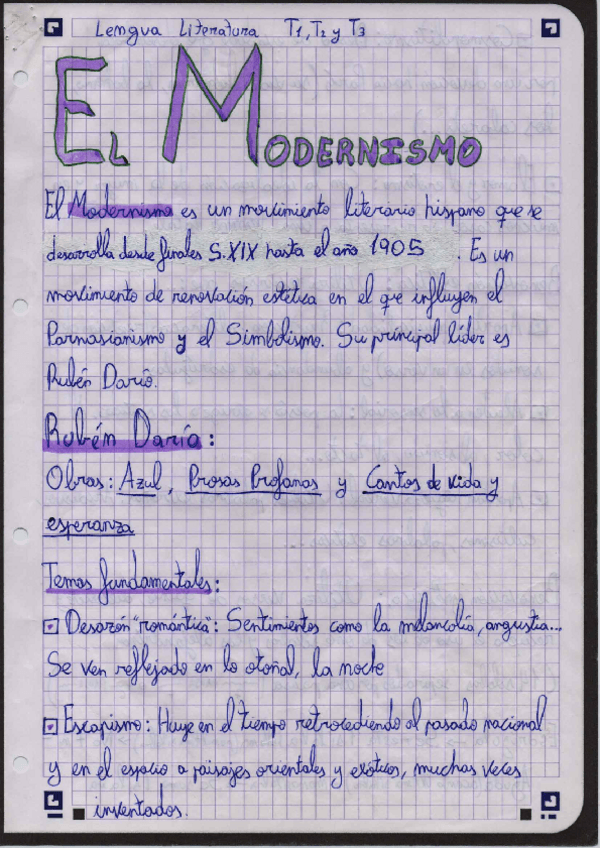 Lengua Literatura T1, T2 y T3
EL MODERNISMO
El Modernismo es un movimiento literario hispano que se
desarrolla desde finales S.XIX hasta el año 1905. Es un
movimiento de renovación estética en el que influyen el
Parnasianismo y el Simbolismo. Su principal líder es
Rubén Darío.
Rubén Darío:
Obras: Azul, Prosas Profanas y Cantos de vida y
esperanza
Temas fundamentales:
Desazón "romántica": Sentimientos como la melancolía, angustia...
Se ven reflejado en lo otoñal, la noche
Escapismo: Huye en el tiempo retrocediendo al pasado nacional
y en el espacio a paisajes orientales y exóticos, muchas veces
inventados.